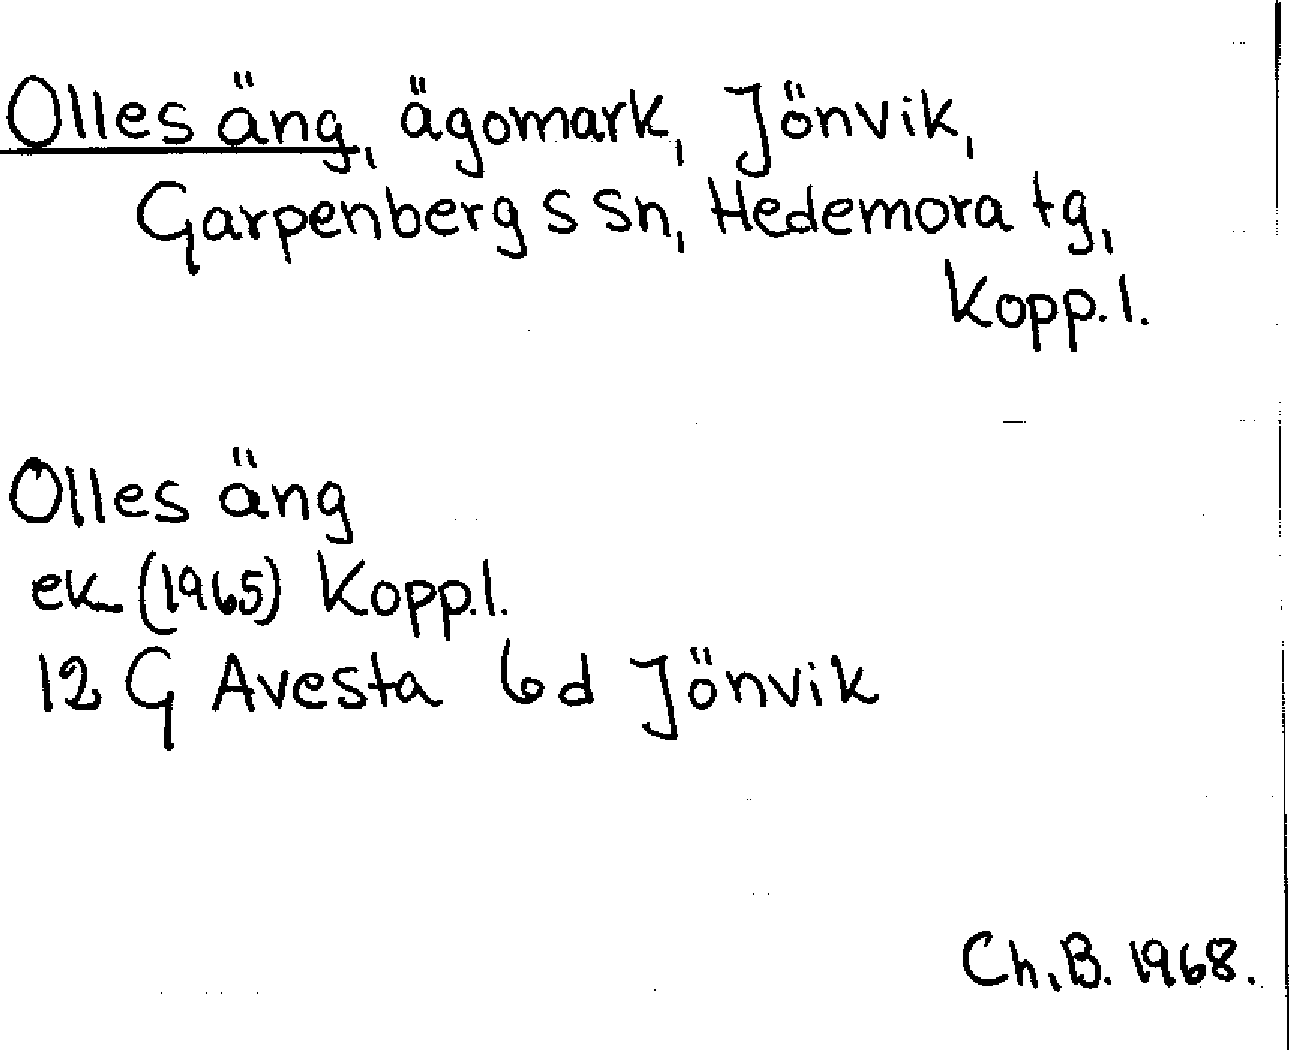 Olles äng, ägomark, Jönvik,
Garpenbergs sn, Hedemora tg,
Kopp. l.
Olles äng
ek (1965) Kopp.l.
12 G Avesta 6d Jönvik
Ch.B. 1968.